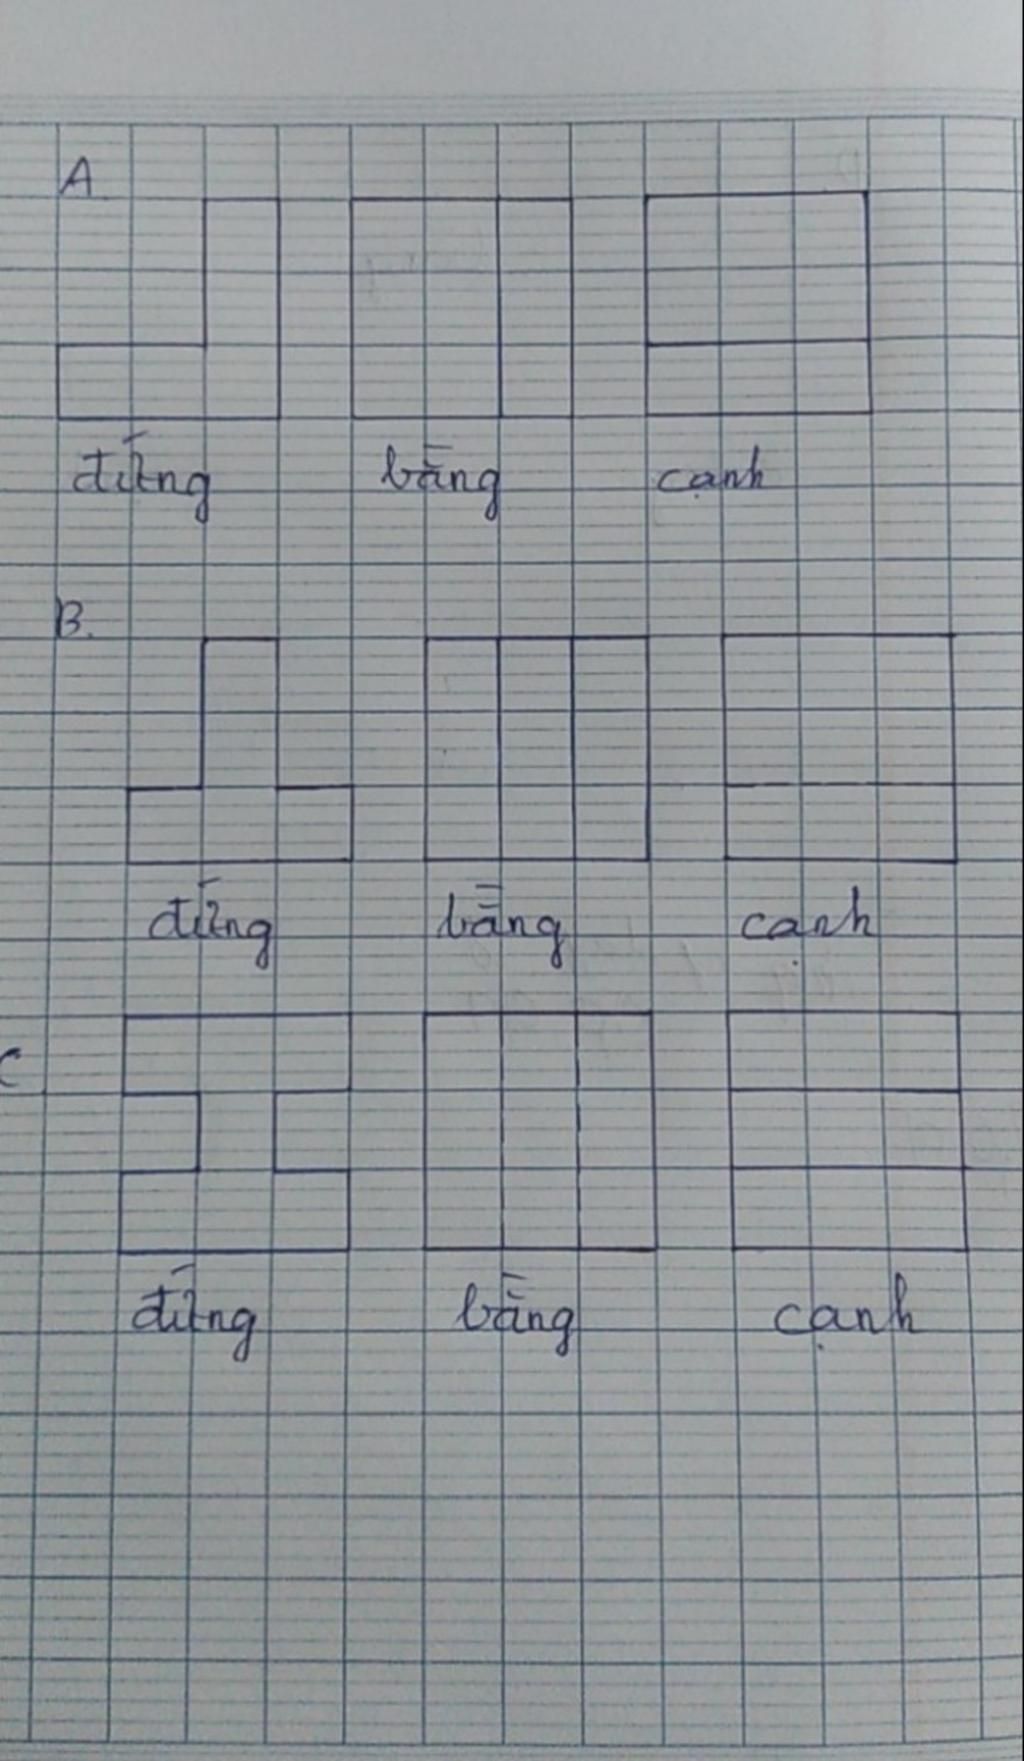 A
đứng bằng cạnh
B.
đứng bằng cạnh
C
đứng bằng cạnh